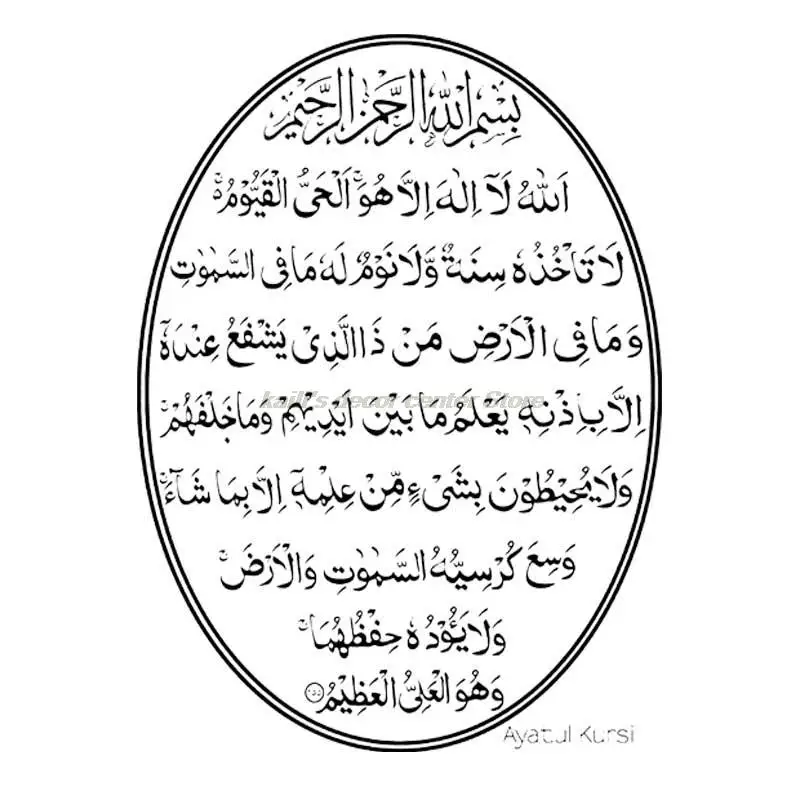 بِسْمِ اللهِ الرَّحْمٰنِ الرَّحِيْمِ
اَللهُ لَآ اِلٰهَ اِلَّا هُوَ ۚ اَلْحَىُّ الْقَيُّوْمُ ۚ
لَا تَاْخُذُهٗ سِنَةٌ وَّلَا نَوْمٌ لَهٗ مَا فِى السَّمٰوٰتِ
وَمَا فِى الْاَرْضِ مَنْ ذَا الَّذِىْ يَشْفَعُ عِنْدَهٗٓ
اِلَّا بِاِذْنِهٖ يَعْلَمُ مَا بَيْنَ اَيْدِيْهِمْ وَمَا خَلْفَهُمْ ۚ
kaili's decor center Store
وَلَا يُحِيْطُوْنَ بِشَىْءٍ مِّنْ عِلْمِهٖٓ اِلَّا بِمَا شَآءَ ۚ
وَسِعَ كُرْسِيُّهُ السَّمٰوٰتِ وَالْاَرْضَ ۚ
وَلَا يَئُوْدُهٗ حِفْظُهُمَا ۚ
وَهُوَ الْعَلِىُّ الْعَظِيْمُ ۝٢٥٥
Ayatul Kursi